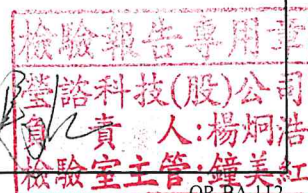 檢驗報告專用章
瑩諮科技(股)公司
負責人:楊炯浩
檢驗室主管:鐘美紅
QP-BA-LT2